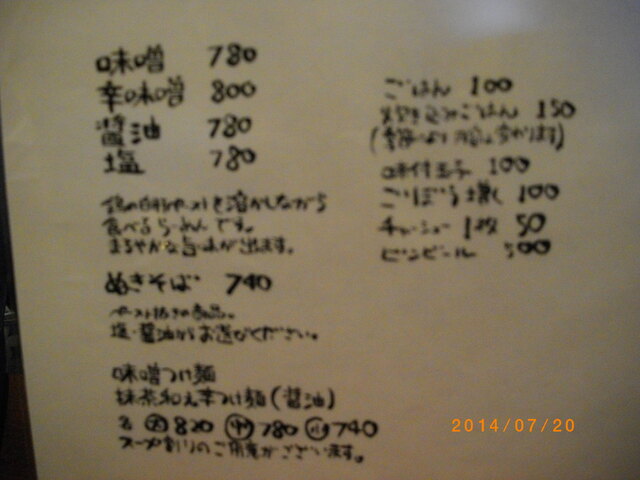 味噌 780
辛味噌 800
醤油 780
塩 780
を溶かしながら
食べるらーめんです。
まろやかな旨味が出ます。
ぬきそば 740
ペースト抜きの商品。
塩・醤油からお選びください。
味噌つけ麺
抹茶和え辛つけ麺(醤油)
各 大 820 中 780 小 740
スープ割りのご用意がございます。
ごはん 100
炊き込みごはん 150
(季節により内容は変わります)
味付玉子 100
ごぼう増し 100
チャーシュー 1枚 50
ビンビール 500
2014/07/20